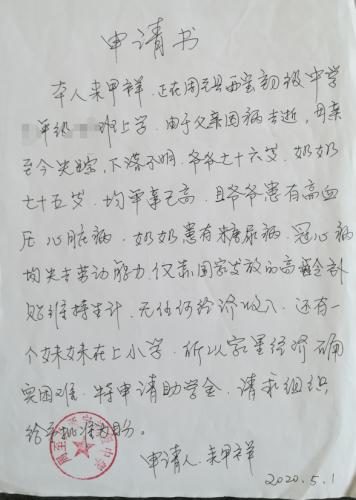 申请书
本人来甲祥，正在周至县西宝初级中学
年级 班上学．由于父亲因病去逝，母亲
至今失踪，下落不明．爷爷七十六岁，奶奶
七十五岁．均年事已高．且爷爷患有高血
压心脏病．奶奶患有糖尿病．冠心病
均失去劳动能力．仅靠国家发放的高龄补
贴维持生计．无任何经济收入．还有一
个妹妹在上小学．所以家里经济确
实困难．特申请助学金．请我组织
给予批准为盼。
申请人：来甲祥
2020.5.1